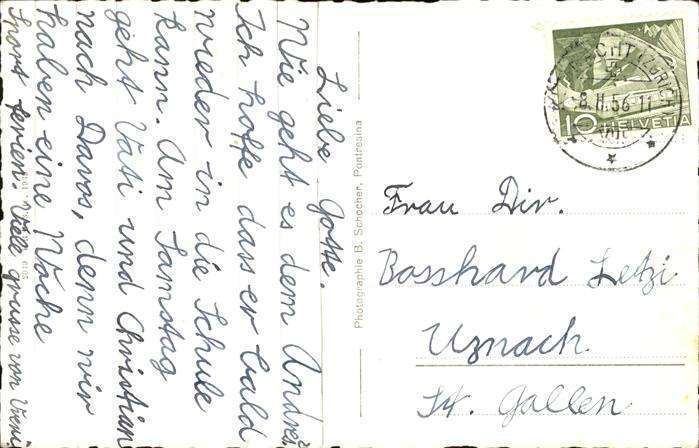 Liebe Gotte.
Wie geht es dem André
Ich hoffe dass er bald
wieder in die Schule
kann. Am Samstag
geht Vati und Christian
nach Davos, denn wir
haben eine Woche
Sport ferien. Viele grüsse von Vreni
Photographie B. Schocher, Pontresina
8.II.56.11
10 HELVETIA
Frau Dir.
Bosshard Letzi
Uznach.
St. Gallen